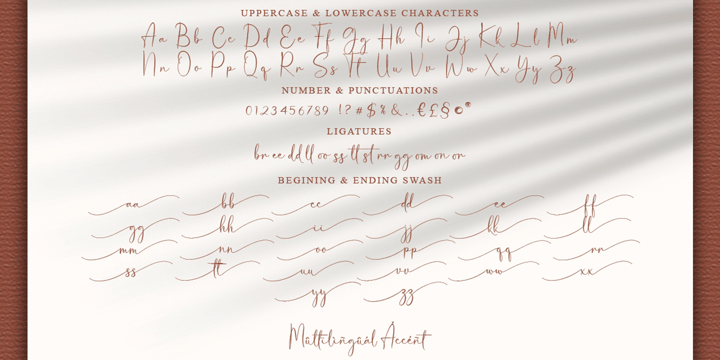 UPPERCASE & LOWERCASE CHARACTERS
Aa Bb Cc Dd Ee Ff Gg Hh Ii Jj Kk Ll Mm
Nn Oo Pp Qq Rr Ss Tt Uu Vv Ww Xx Yy Zz
NUMBER & PUNCTUATIONS
0123456789 !?#$%&..€£§©®
LIGATURES
br ee dd ll oo ss tt st rr gg om on or
BEGINING & ENDING SWASH
aa bb cc dd ee ff
gg hh ii jj kk ll
mm nn oo pp qq rr
ss tt uu vv ww xx
yy zz
Múltilingúál Accént